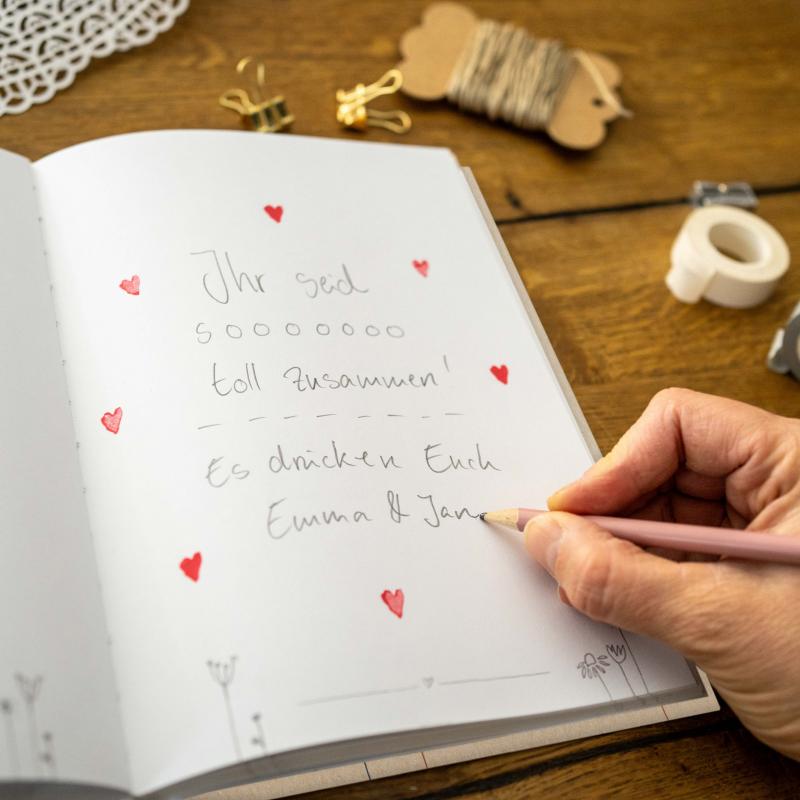 Ihr seid
soooooooo
toll zusammen!
Es drücken Euch
Emma & Jan